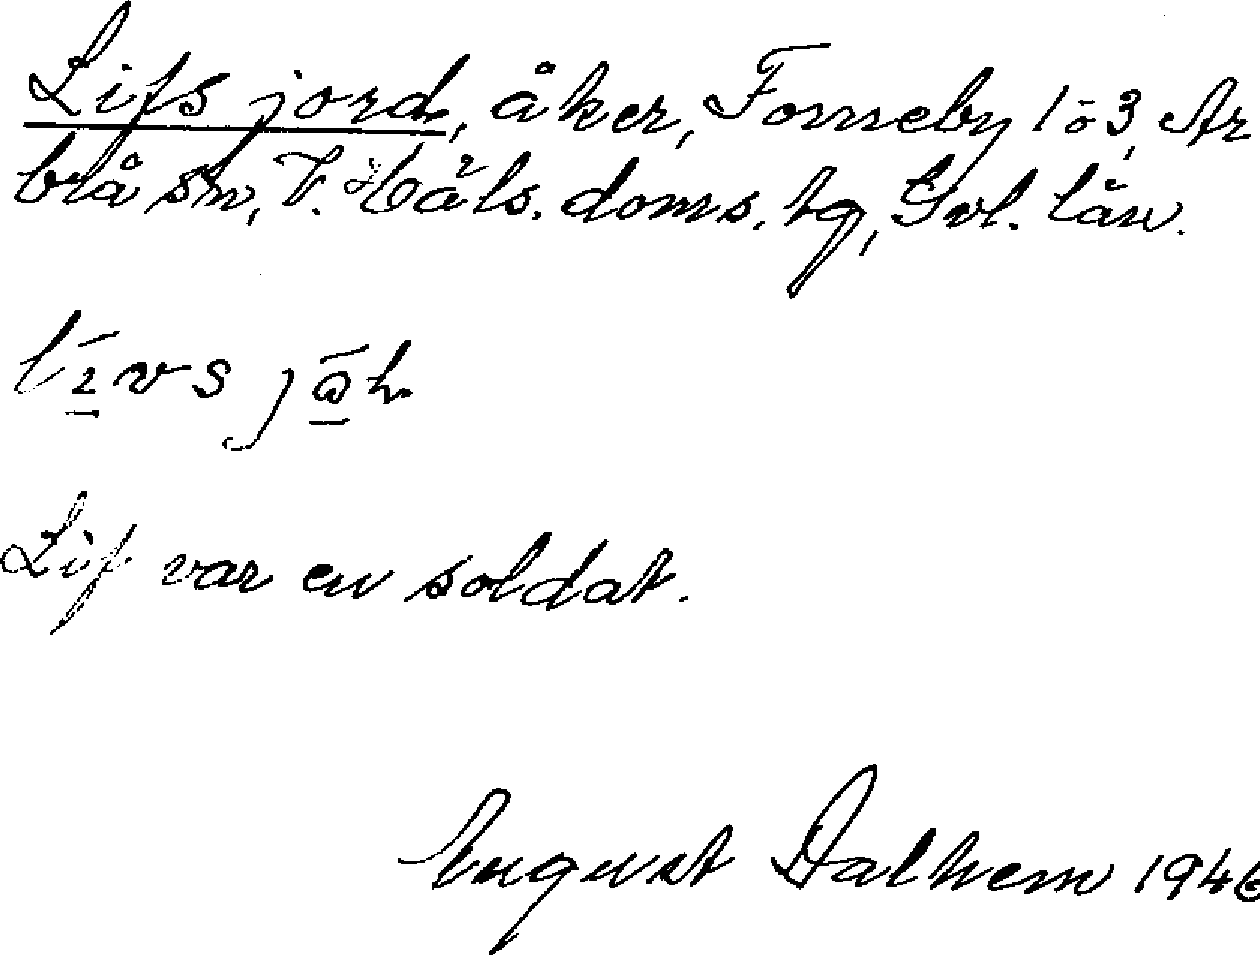 Lifs jord, åker, Forneby 1 ō 3, Ar
brå sn, V. Häls. doms. tg, Gvl. län.
l ī v s j ā h
Lif var en soldat.
August Dalhem 1946